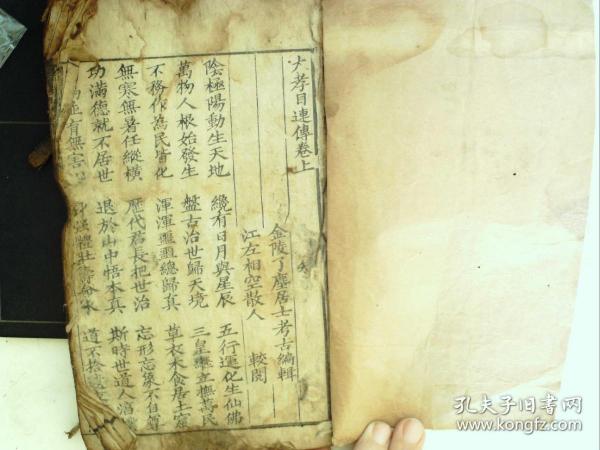 大孝目連傳卷上
金陵了塵居士考古編輯
江左相空散人 較閱
陰極陽動生天地 纔有日月與星辰 五行運化生仙佛
萬物人根始發生 盤古治世歸天境 三皇繼立撫萬民
不務作為民皆化 渾渾噩噩總歸真 草衣木食居土窟
無寒無暑任縱橫 歷代君長把世治 忘形忘象不自尊
功滿德就不居世 退於山中悟本真 斯時世道人滔
有無害 體壯 道不拾
孔夫子旧书网
www.kongfz.com